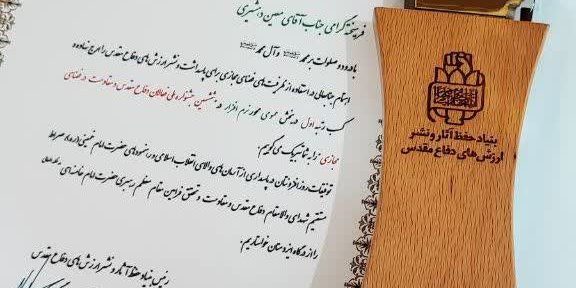 فرهیخته گرامی جناب آقای معین درشیری
با درود و صلوات بر محمد و آل محمد
اهتمام جنابعالی در استفاده از ظرفیت‌های فضای مجازی برای پاسداشت و نشر ارزش‌های دفاع مقدس را ارج نهاده و
کسب رتبه اول در بخش عمومی محور نرم افزار در ششمین جشنواره ملی فعالان دفاع مقدس و مقاومت در فضای
مجازی را به شما تبریک می‌گویم.
توفیقات روزافزونتان در پاسداری از آرمان‌های والای انقلاب اسلامی و رهنمودهای حضرت امام خمینی (ره) و صراط
مستقیم شهدای والامقام دفاع مقدس و مقاومت و تحقق فرامین مقام معظم رهبری حضرت امام خامنه‌ای
را از درگاه ایزد منان خواستاریم.
رئیس بنیاد حفظ آثار و نشر ارزش‌های دفاع مقدس
بنیاد حفظ آثار و نشر
ارزش‌های دفاع مقدس